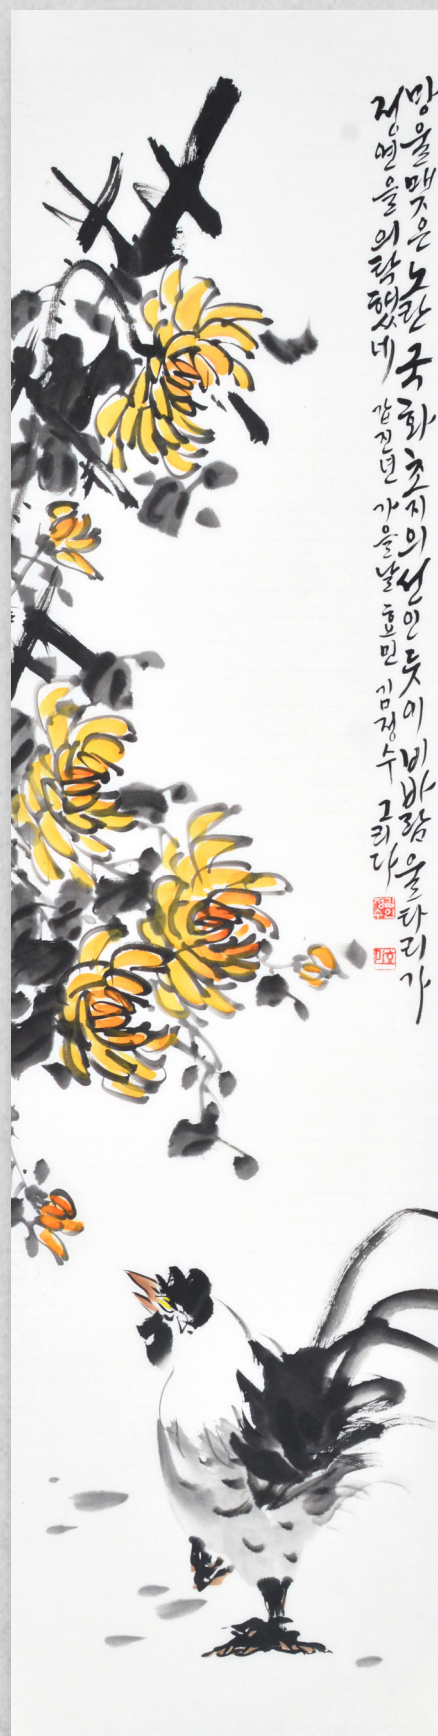 망울맺은 노란 국화 초지의 선인 듯이 비바람 울타리가
전연을 의탁했네 갑진년 가을날 효민 김정수 그리다